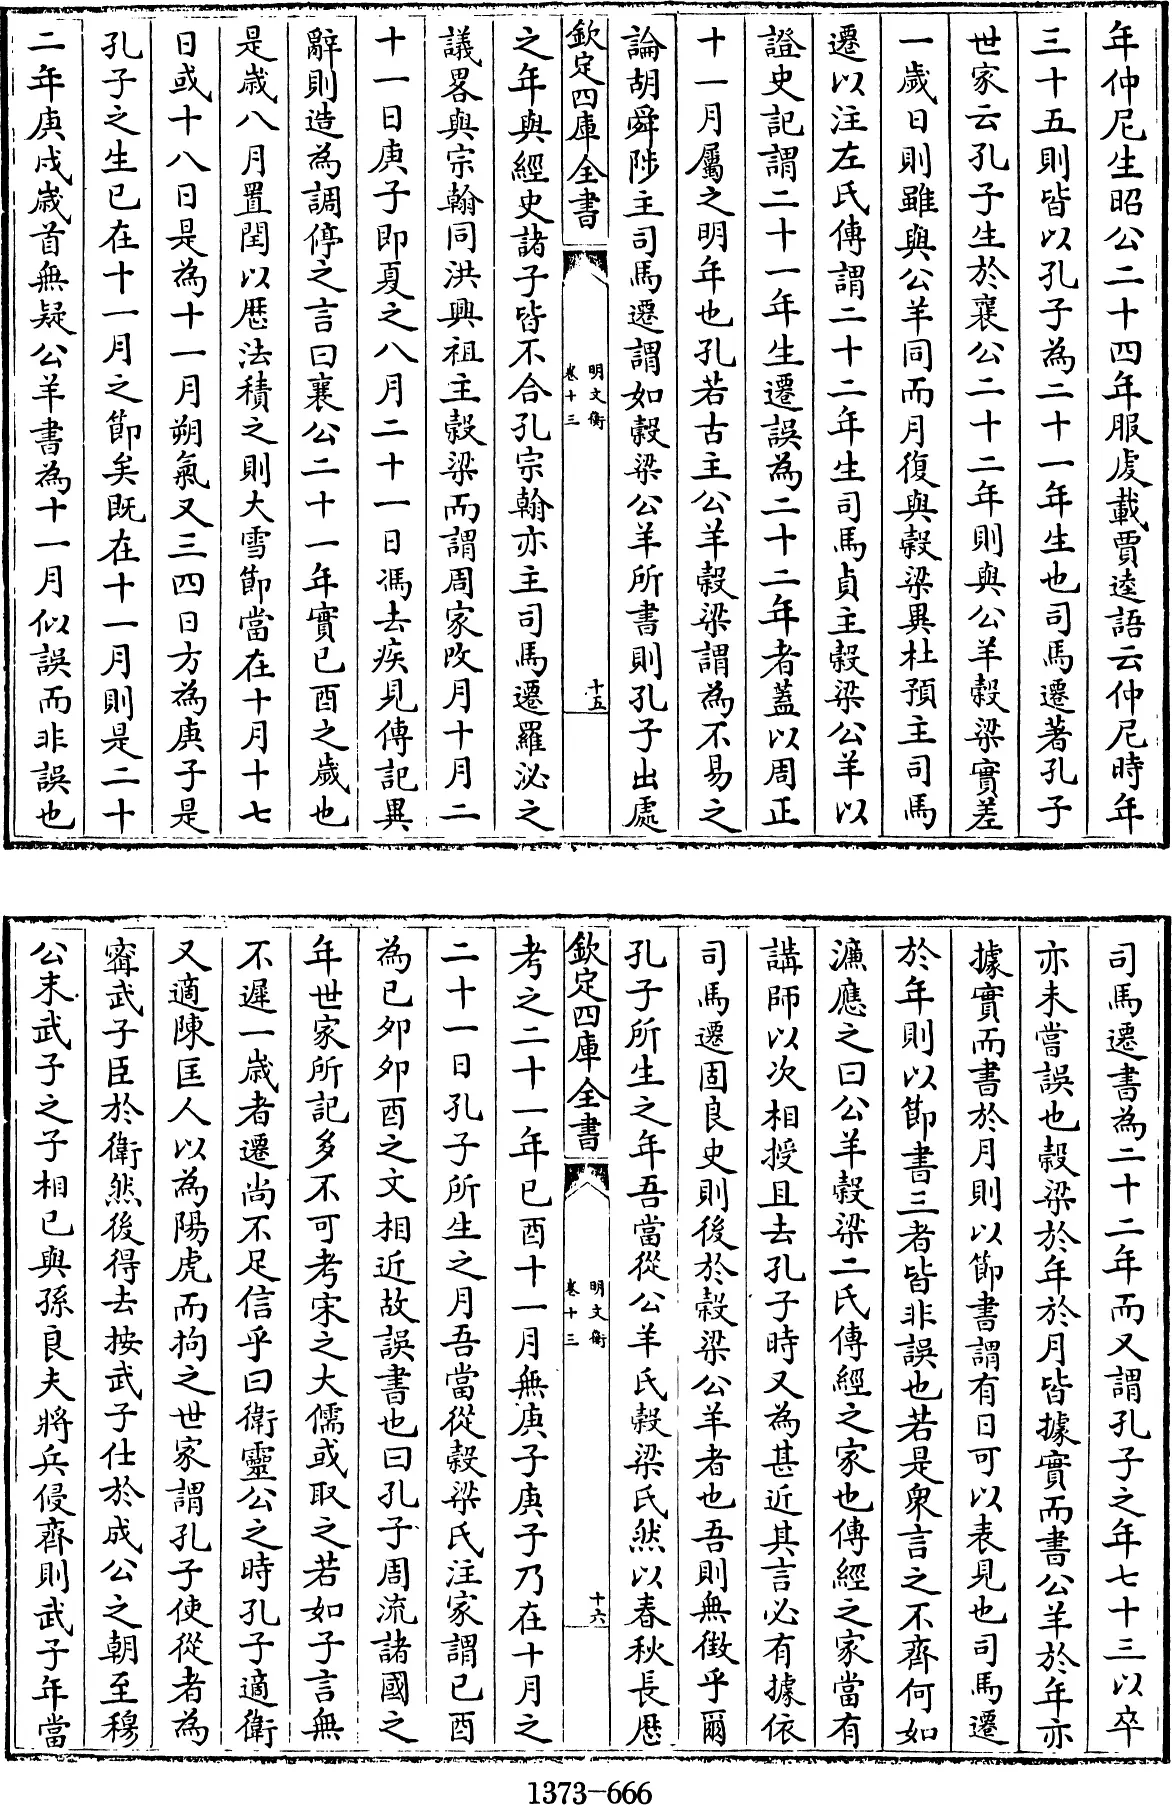 年仲尼生昭公二十四年服䖍載賈逵語云仲尼時年
三十五則皆以孔子為二十一年生也司馬遷著孔子
世家云孔子生於襄公二十二年則與公羊榖梁實差
一歲日則雖與公羊同而月復與榖梁異杜預主司馬
遷以注左氏傳謂二十二年生司馬貞主榖梁公羊以
證史記謂二十一年生遷誤為二十二年者蓋以周正
十一月屬之明年也孔若古主公羊榖梁謂為不易之
論胡舜陟主司馬遷謂如榖梁公羊所書則孔子出處
欽定四庫全書
明文衡
卷十三
十五
之年與經史諸子皆不合孔宗翰亦主司馬遷羅泌之
議畧與宗翰同洪興祖主榖梁而謂周家改月十月二
十一日庚子即夏之八月二十一日馮去疾見傳記異
辭則造為調停之言曰襄公二十一年實已酉之歲也
是歲八月置閏以厯法積之則大雪節當在十月十七
日或十八日是為十一月朔氣又三四日方為庚子是
孔子之生已在十一月之節矣既在十一月則是二十
二年庚戌歲首無疑公羊書為十一月似誤而非誤也
司馬遷書為二十二年而又謂孔子之年七十三以卒
亦未嘗誤也榖梁於年於月皆據實而書公羊於年亦
據實而書於月則以節書謂有日可以表見也司馬遷
於年則以節書三者皆非誤也若是衆言之不齊何如
濂應之曰公羊榖梁二氏傳經之家也傳經之家當有
講師以次相授且去孔子時又為甚近其言必有據依
司馬遷固良史則後於榖梁公羊者也吾則無徴乎爾
孔子所生之年吾當從公羊氏榖梁氏然以春秋長厯
欽定四庫全書
明文衡
卷十三
十六
考之二十一年已酉十一月無庚子庚子乃在十月之
二十一日孔子所生之月吾當從榖梁氏注家謂已酉
為已卯卯酉之文相近故誤書也曰孔子周流諸國之
年世家所記多不可考宋之大儒或取之若如子言無
不遲一歲者遷尚不足信乎曰衛靈公之時孔子適衛
又適陳匡人以為陽虎而拘之世家謂孔子使從者為
甯武子臣於衛然後得去按武子仕於成公之朝至穆
公末武子之子相已與孫良夫將兵侵齊則武子年當
1373-666